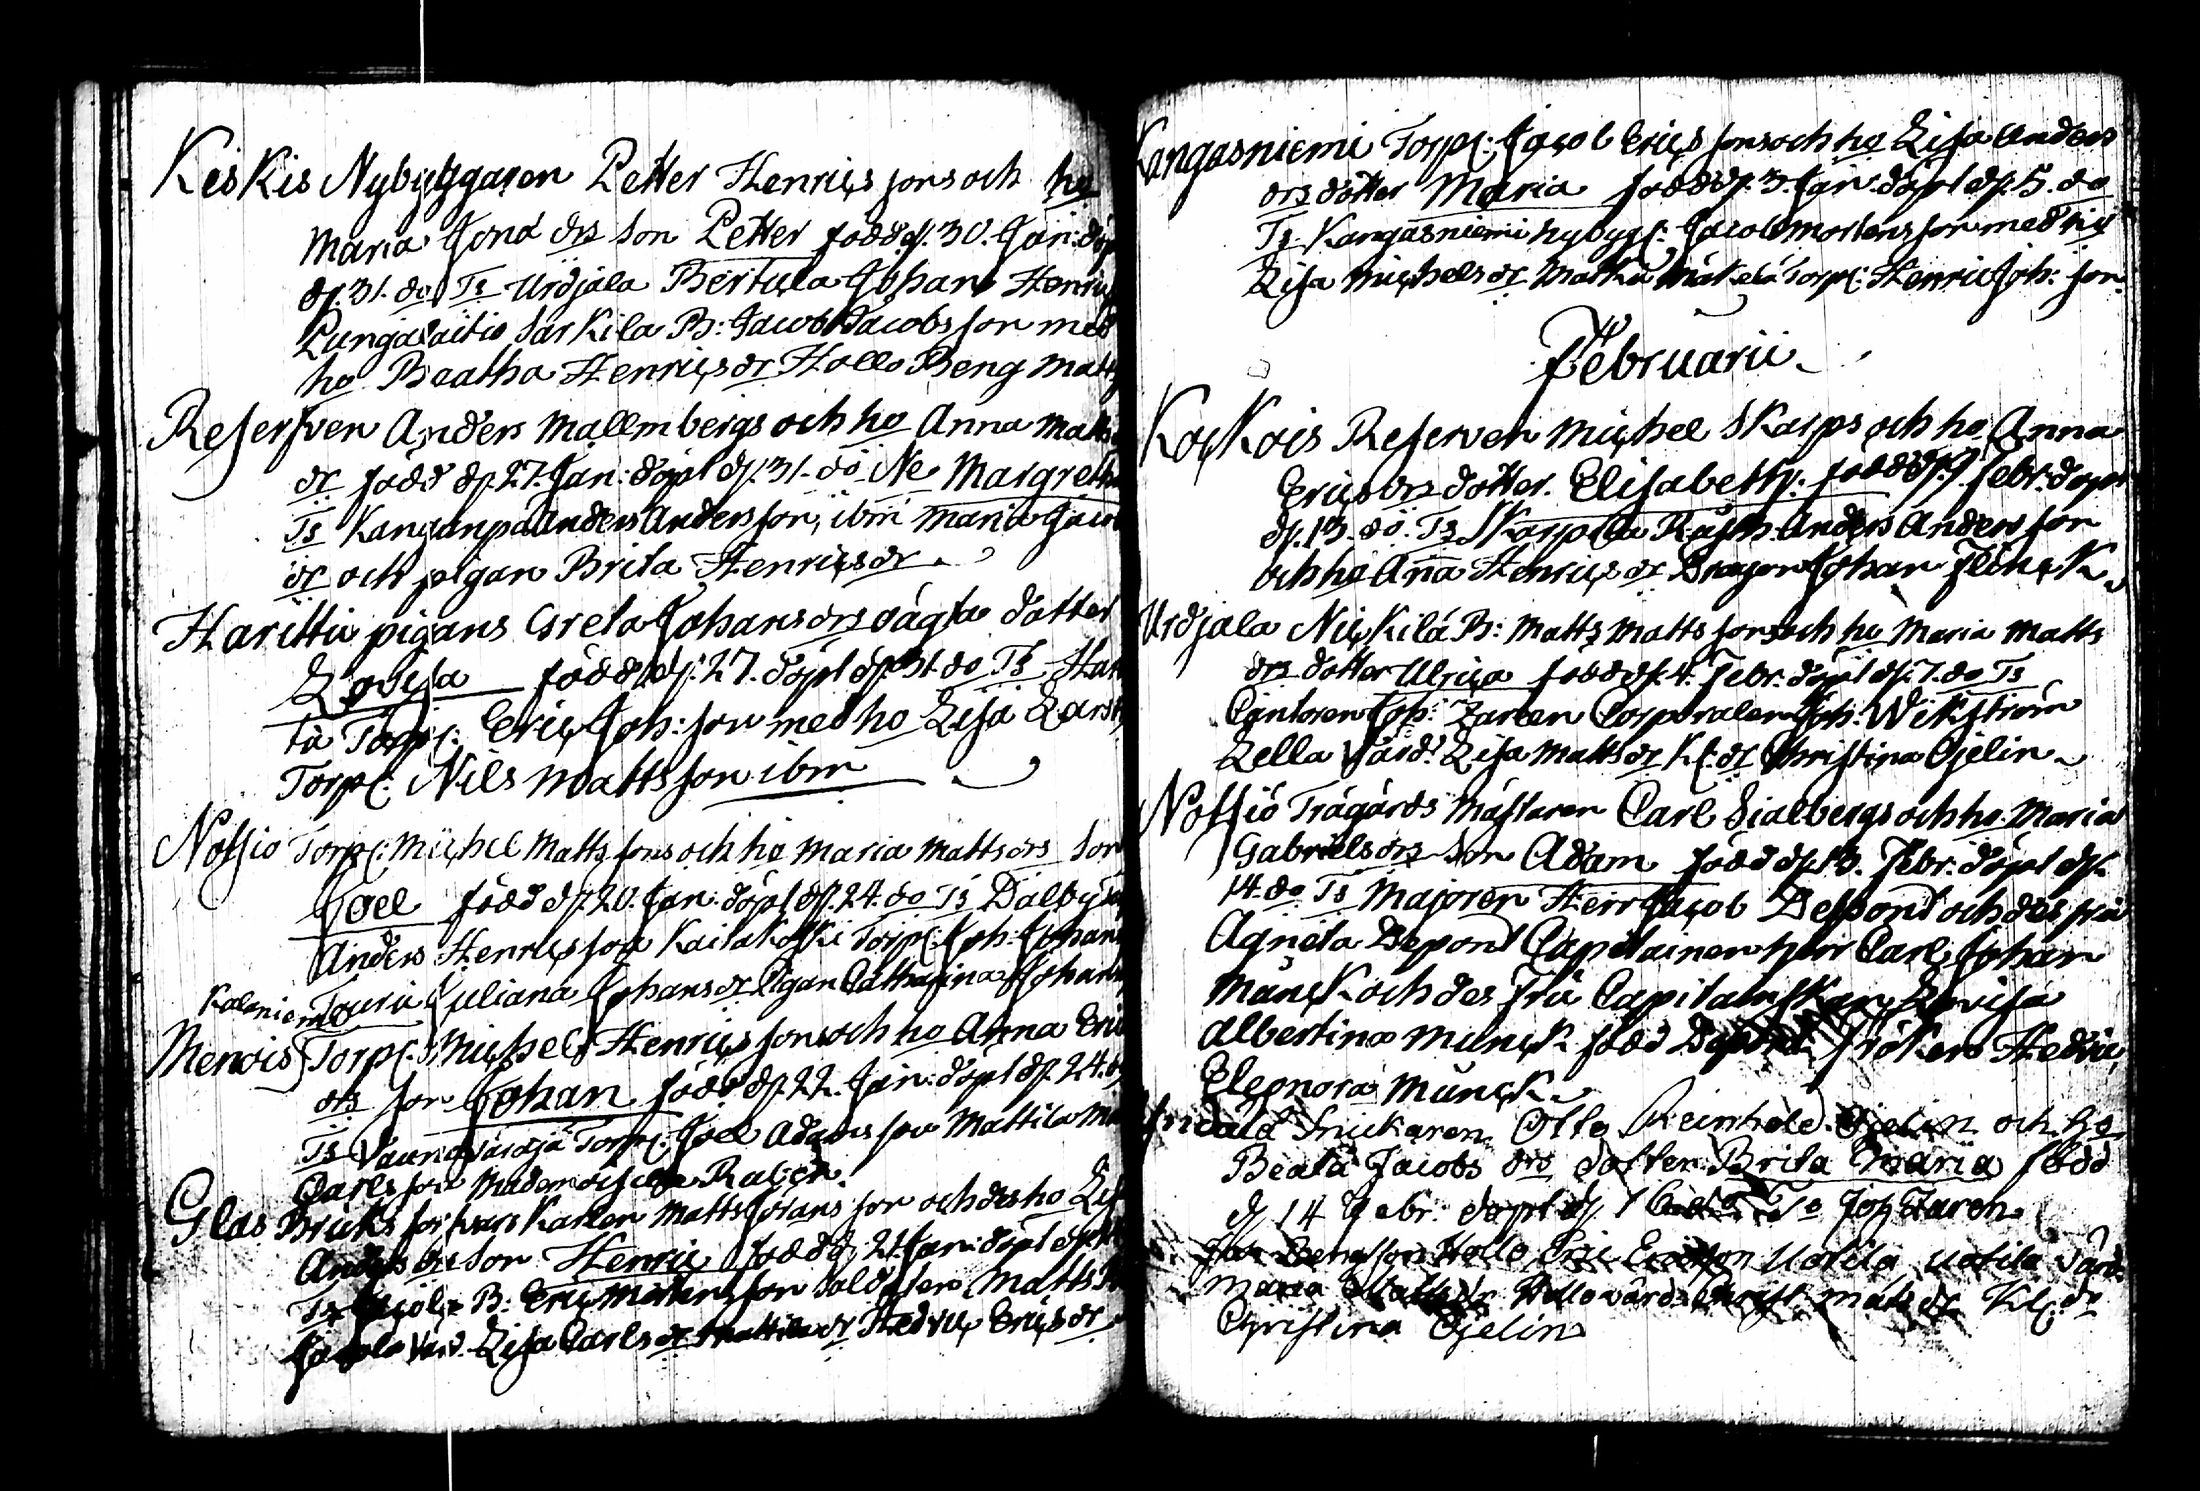 KesKis Nybyggaren Petter Henrics sons och ho
Maria Jona drs son Petter född d. 30. Jan: döp
d. 31. do Ts Urdjala Bertula Johan Henric
Lungalaitio SarKila B: Jacob Jacobs son med
ho Beatha Henricsdr Hollo Beng Matts
Reserfven Anders Mallmbergs och ho Anna Matts
dr född d. 27. Jan: döpt d. 31. do Ne Margretha
Ts Kanganpä Anders Anders son, ibm Maria Jacobs
dr och pigan Brita Henricsdr
Harittu pigans Greta Johans drs oägta dotter
Lovisa född d. 27. döpt d. 31. do Ts Harit
tu Torp: Eric Joh: son med ho Lisa Lars
Torp: Nils Matts son ibm
Notsio Torp: Michel Matts sons och ho Maria Matts drs son
Joel född d. 20. Jan: döpt d. 24. do Ts Dalby
Anders Henrics son Kaitakoski Torp: Joh: Johans
Touru Juliana Johans dr Pigan Catharina Johans
Kaleniemi
Menois Torp: Michel Henrics sons och ho Anna Eric
drs son Johan född d. 22. Jan: döpt d. 24. do
Ts Torp: Joel Adams son Mattila
Carls son Raben.
Glas Bruks Karlen Matts Johans son och des ho Lisa
Anders drs Son Henric född d. 21. Jan: döpt
Ts B: Eric Mårtens son Soldaten Matts
värd. Lisa Carls dr Hedvig Erics dr
Kangasniemi Torp: Jacob Erics sons och ho Lisa Anders
drs dotter Maria född d. 3. Jan. döpt d. 5. do
Ts Kangasniemi nybyg: Jacob Mortens son med
Lisa Michelsdr Mäkelä Torp: Henric Joh: son
Februarii
KocKois Reserven Michel Skarps och ho Anna
Erics drs dotter. Elisabeth. född d. 9. Febr: döpt
d. 13. do. Ts Skarpila Rusth: Anders Anders son
och ho Anna Henrics dr Dragon Johan FlincK
Urdjala NicKilä B: Matts Matts sons och ho Maria Matts
drs dotter Ulrica född d. 4. Febr: döpt d. 7. do Ts
Cantoren Joh: Zaren Corporalen Joh: Wikström
Zella Värd: Lisa Matts dr Kl: dr Christina Ojelin
Notsiö Trägårds Mästaren Carl Sialbergs och ho Maria
Gabriels drs son Adam född d. 13. Febr: döpt d.
14. do Ts Majoren Herr Jacob Depont och des fru
Agneta Depont Capitainen herr Carl Johan
MuncK och des fru Capitainskan Lovisa
Albertina Munck född fröken Hedvig
Eleonora MuncK
Snickaren Otto Reinhold Ojelin och ho
Beata Jacobs drs dotter Brita Maria född
d. 14 Febr: döpt d. 16 do Ts Joh Zaren
Bengtson Hollo Eric Ericson Uotila Uotila Värd:
Maria Matts dr Hollo värd: Christ: Mats dr Kl: dr
Christina Ojelin